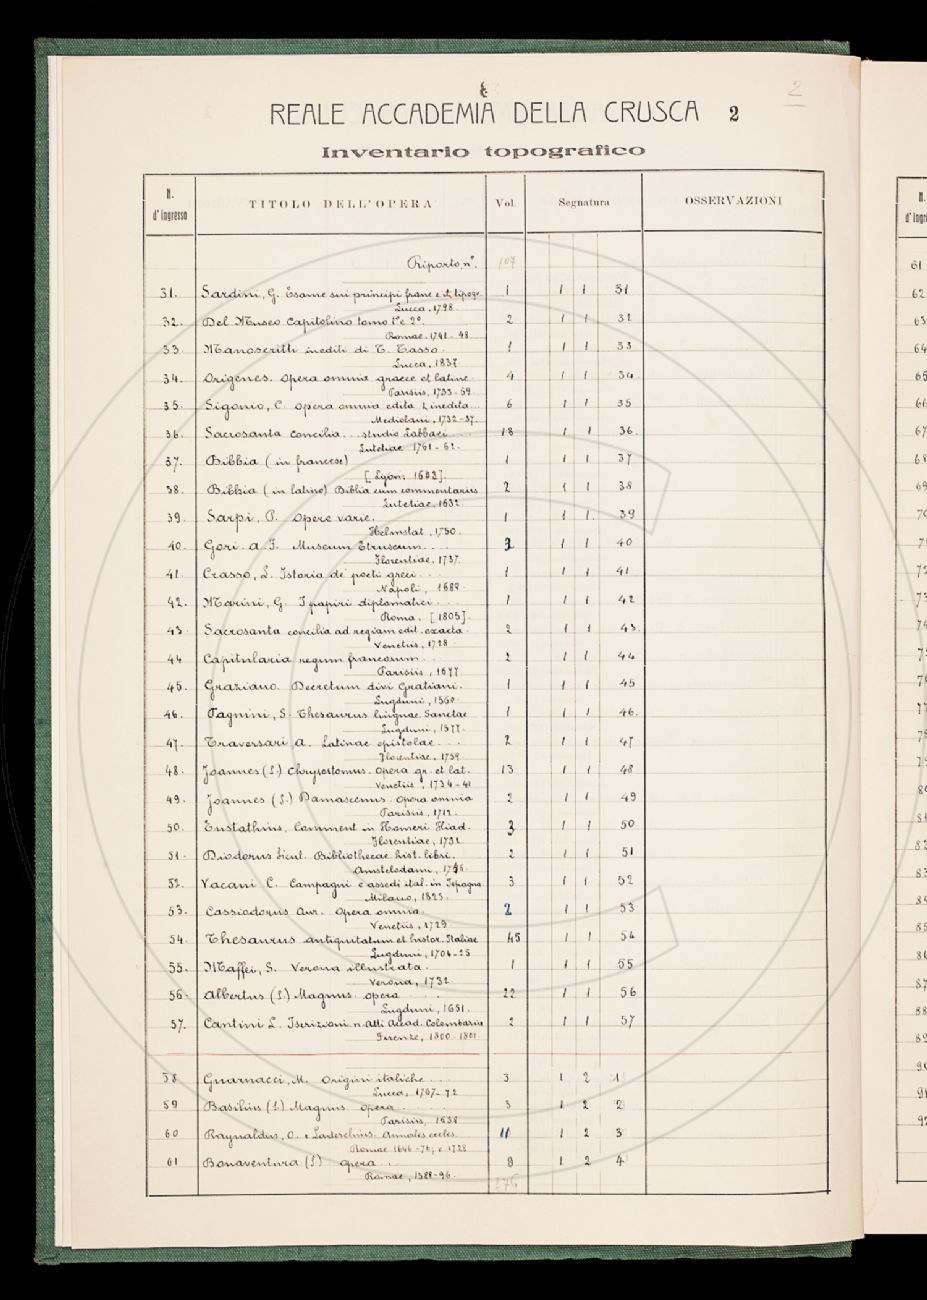 2
REALE ACCADEMIA DELLA CRUSCA 2
Inventario topografico
N. d'ingresso TITOLO DELL'OPERA Vol. Segnatura OSSERVAZIONI
Riporto, n°. 107
31. Sardini, G. Esame sui principi franc. e it. tipogr. 1 1 1 31
Lucca. 1798.
32. Del Museo Capitolino tomo 1° e 2°. 2 1 1 32
Romae. 1741-48
33. Manoscritti inediti di T. Tasso. 1 1 1 33
Lucca, 1837.
34. Origenes. Opera omnia graece et latine. 4 1 1 34.
Parisiis, 1733-59.
35. Sigonio, C. opera omnia edita & inedita... 6 1 1 35
Mediolani, 1732-37.
36. Sacrosanta Concilia... studio Labbaei... 18 1 1 36.
Lutetiae 1761-62.
37. Bibbia (in francese) 1 1 1 37
[Lyon: 1602].
38. Bibbia (in latino) Biblia cum commentarius 2 1 1 38
Lutetiae, 1632.
39. Sarpi, P. Opere varie. 1 1 1. 39
Helmstat, 1750.
40. Gori. A. F. Museum Etruscum.... 3 1 1 40
Florentiae, 1737.
41. Crasso, L. Istoria de' poeti greci... 1 1 1 41
Napoli, 1688.
42. Marini, G. I papiri diplomatici... 1 1 1 42
Roma. [1805].
43. Sacrosanta concilia ad regiam edit. exacta. 2 1 1 43.
Venetiis, 1728.
44 Capitularia regum francorum... 2 1 1 44
Parisiis, 1677
45. Graziano. Decretum divi Gratiani. 1 1 1 45
Lugduni, 1560.
46. Pagnini, S. Thesaurus linguae Sanctae 1 1 1 46.
Lugduni, 1577.
47. Traversari, A. Latinae epistolae... 2 1 1 47
Florentiae, 1759.
48. Joannes (S.) Chrysostomus. Opera gr. et lat. 13 1 1 48
Venetiis, 1734-41
49. Joannes (S.) Damascenus. Opera omnia 2 1 1 49
Parisiis, 1712.
50. Eustathius, Comment in Homeri Iliad. 3 1 1 50
Florentiae, 1732.
51. Diodorus Sicul. Bibliothecae hist. libri. 2 1 1 51
Amstelodami, 1746.
52. Vacani C. Campagni e assedi ital. in Ispagna. 3 1 1 52
Milano, 1823.
53. Cassiodorus Aur. Opera omnia. 2 1 1 53
Venetiis, 1729.
54. Thesaurus antiquitatum et histor. Italiae 45 1 1 54
Lugduni, 1704-25
55. Maffei, S. Verona illustrata. 1 1 1 55
Verona, 1732.
56. Albertus (S.) Magnus. opera.... 22 1 1 56
Lugduni, 1651.
57. Cantini L. Iscrizioni n. Atti Accad. Colombaria 2 1 1 57
Firenze, 1800-1801.
58. Guarnacci, M. Origini italiche... 3 1 2 1
Lucca, 1767-72
59 Basilius (S.) Magnus opera..... 3 1 2 2
Parisiis, 1638
60 Raynaldus, O. e Laderchius. Annales eccles. 11 1 2 3
Romae 1646-76, e 1728
61 Bonaventura (S.) opera... 8 1 2 4
Romae, 1588-96.
N. d'ingr
61
62
63
64
65
66
67
68
69
70
71
72
73
74